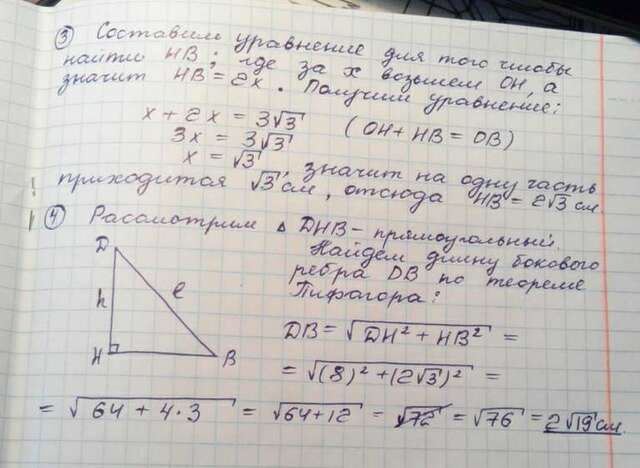 ③ Составим уравнение для того чтобы
найти HB; где за x возьмем OH, а
значит HB = 2x. Получим уравнение:
x + 2x = 3√3 (OH + HB = OB)
3x = 3√3
x = √3, значит на одну часть
приходится √3 см, отсюда HB = 2√3 см.
④ Рассмотрим △ DHB – прямоугольный.
Найдем длину бокового
ребра DB по теореме
Пифагора:
D
h
l
H
B
DB = √(DH² + HB²) =
= √((8)² + (2√3)²) =
= √(64 + 4·3) = √(64+12) = √72 = √76 = 2√19 см.